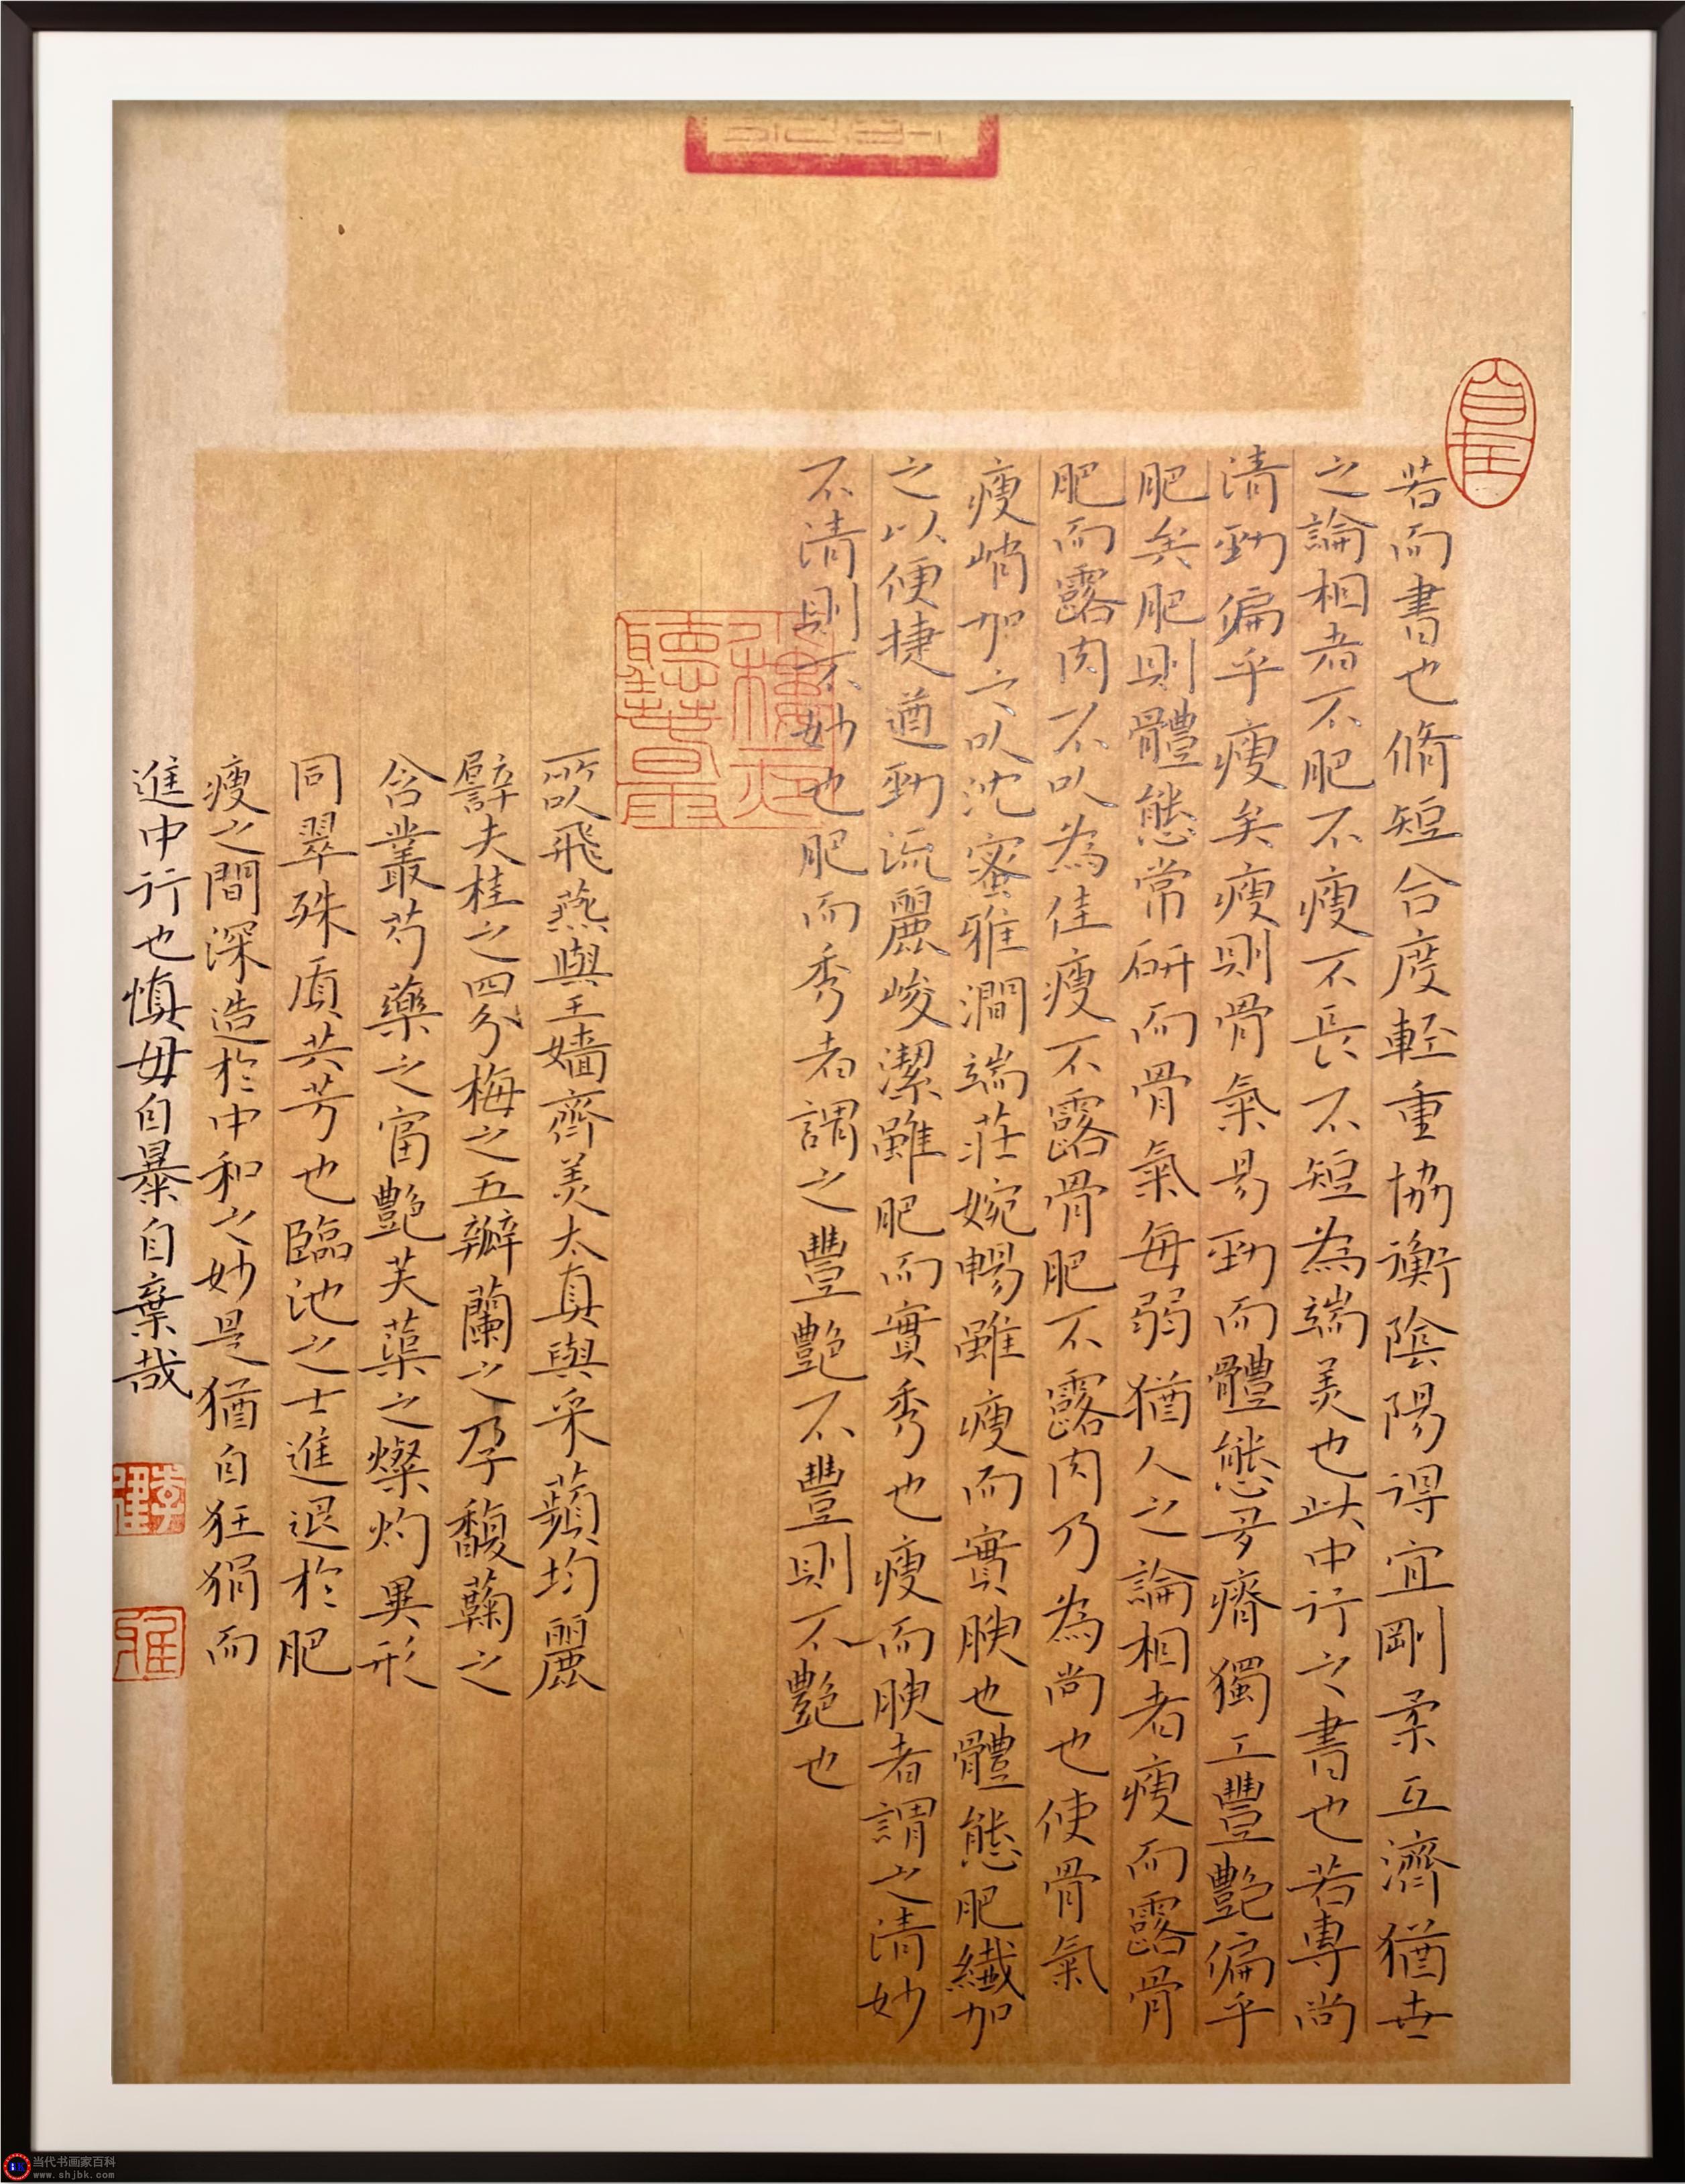 若而書也脩短合度輕重協衡陰陽得宜剛柔互濟猶世
之論相者不肥不瘦不長不短為端美也此中行之書也若專尚
清勁偏乎瘦矣瘦則骨氣易勁而體態多瘠獨工豐艷偏乎
肥矣肥則體態常妍而骨氣每弱猶人之論相者瘦而露骨
肥而露肉不以為佳瘦不露骨肥不露肉乃為尚也使骨氣
瘦峭加之以沈蜜雅潤端莊婉暢雖瘦而實腴也體態肥纖加
之以便捷遒勁流麗峻潔雖肥而實秀也瘦而腴者謂之清妙
不清則不妙也肥而秀者謂之豐艷不豐則不艷也
所以飛燕與王嬙齊美太真與采蘋均麗
譬夫桂之四分梅之五瓣蘭之孕馥菊之
含叢芍藥之富艷芙蕖之燦灼異形
同翠殊質共芳也臨池之士進退於肥
瘦之間深造於中和之妙是猶自狂狷而
進中行也慎毋自暴自棄哉
当代书画家百科
www.shjbk.com